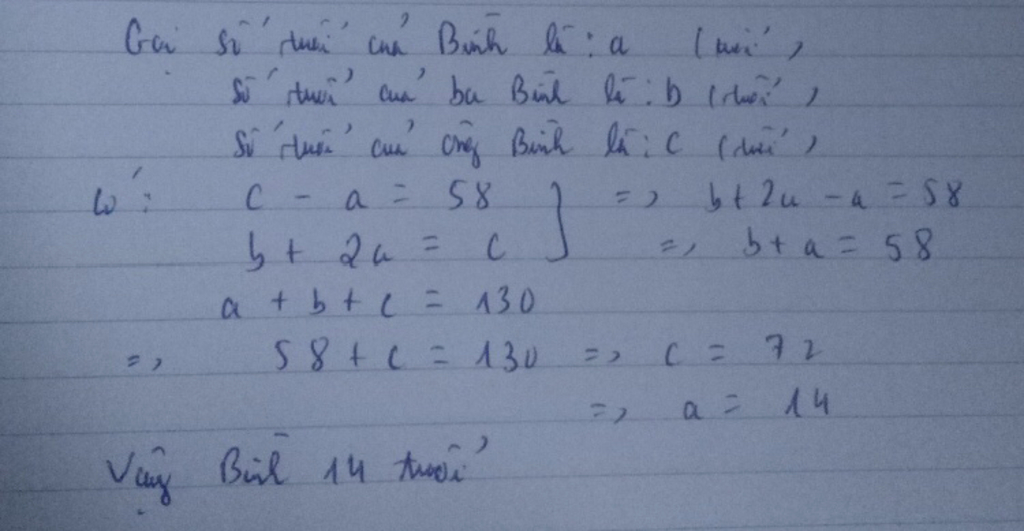 Gọi số tuổi của Bình là : a (tuổi)
số tuổi của ba Bình là : b (tuổi)
số tuổi của ông Bình là : c (tuổi)
Có : c - a = 58 } => b + 2a - a = 58
b + 2a = c => b + a = 58
a + b + c = 130
=> 58 + c = 130 => c = 72
=> a = 14
Vậy Bình 14 tuổi